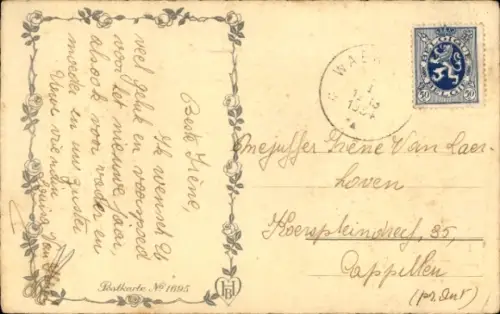 Beste Irène,
Ik wensch U
veel geluk en voorspoed
voor het nieuwe jaar,
alsook voor vader en
moeder en uw zuster
Uwe vrienden
Postkarte No 1695
HB
BELGIQUE
BELGIE
50 50
Mejuffer Irène Van Laer-
hoven
Koerspleindreef, 35,
Cappellen
(pr. Ant)